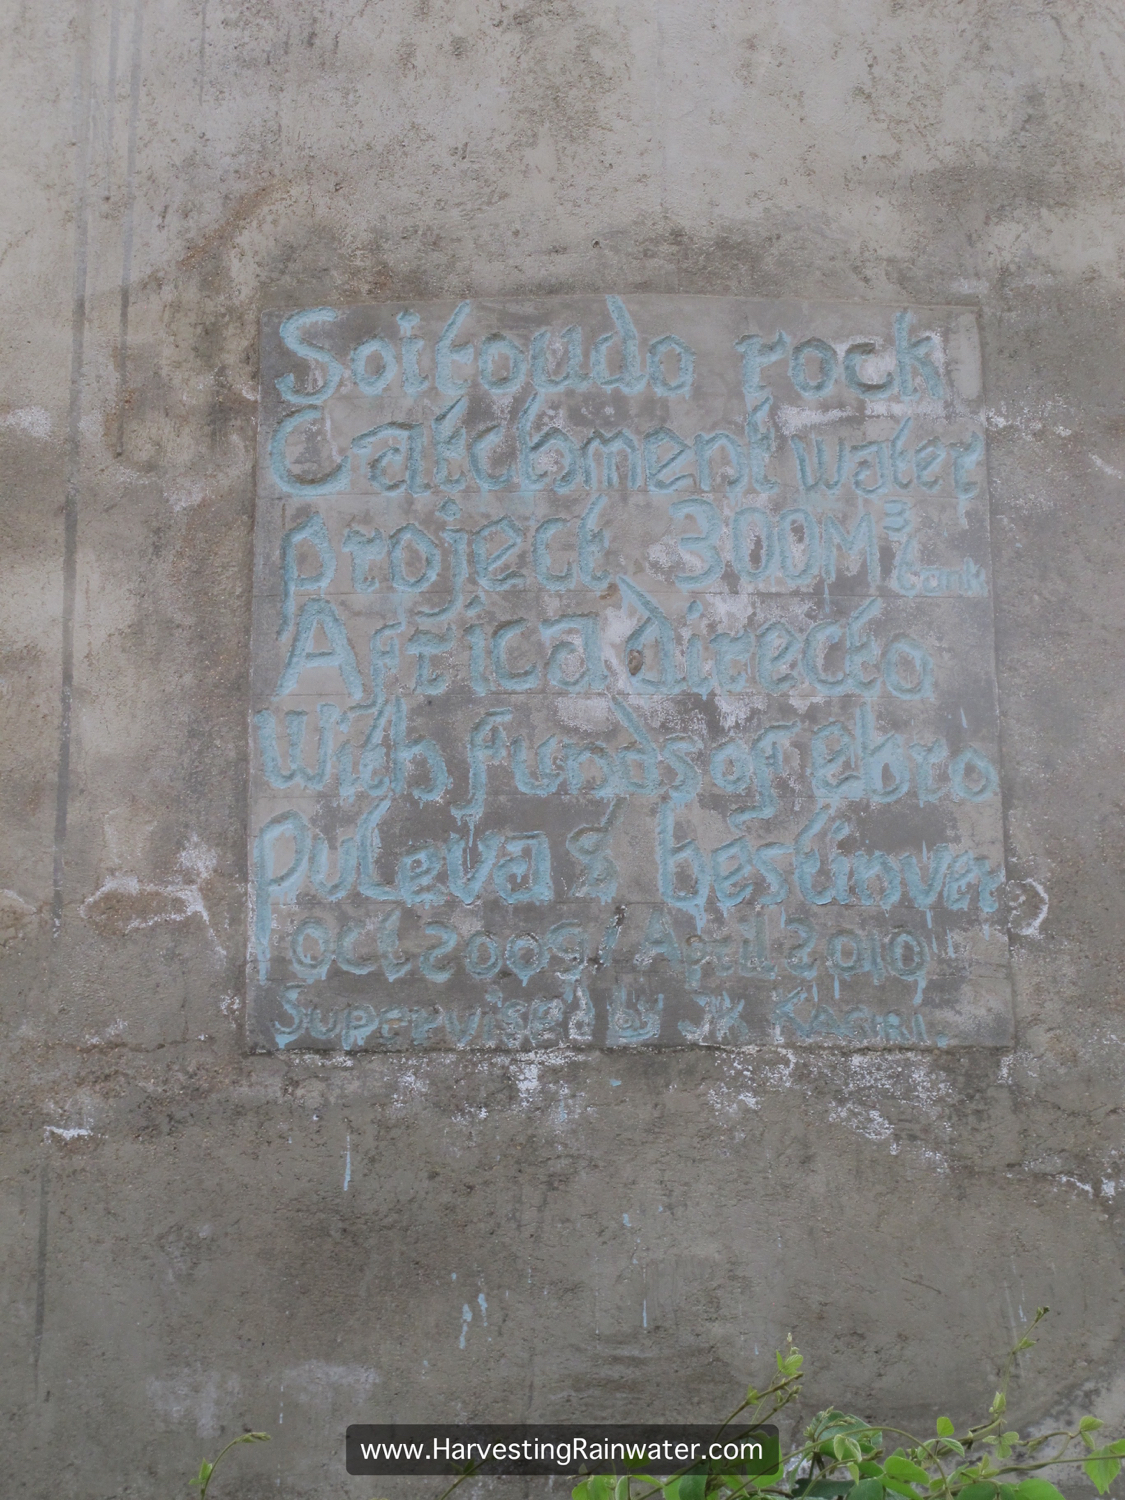 Soitoudo rock
Catchment water
project 300M³ tank
Africa directo
With funds of ebro
puleva & bestinver
Oct 2009 / April 2010
Supervised by JK Kariri.
www.HarvestingRainwater.com